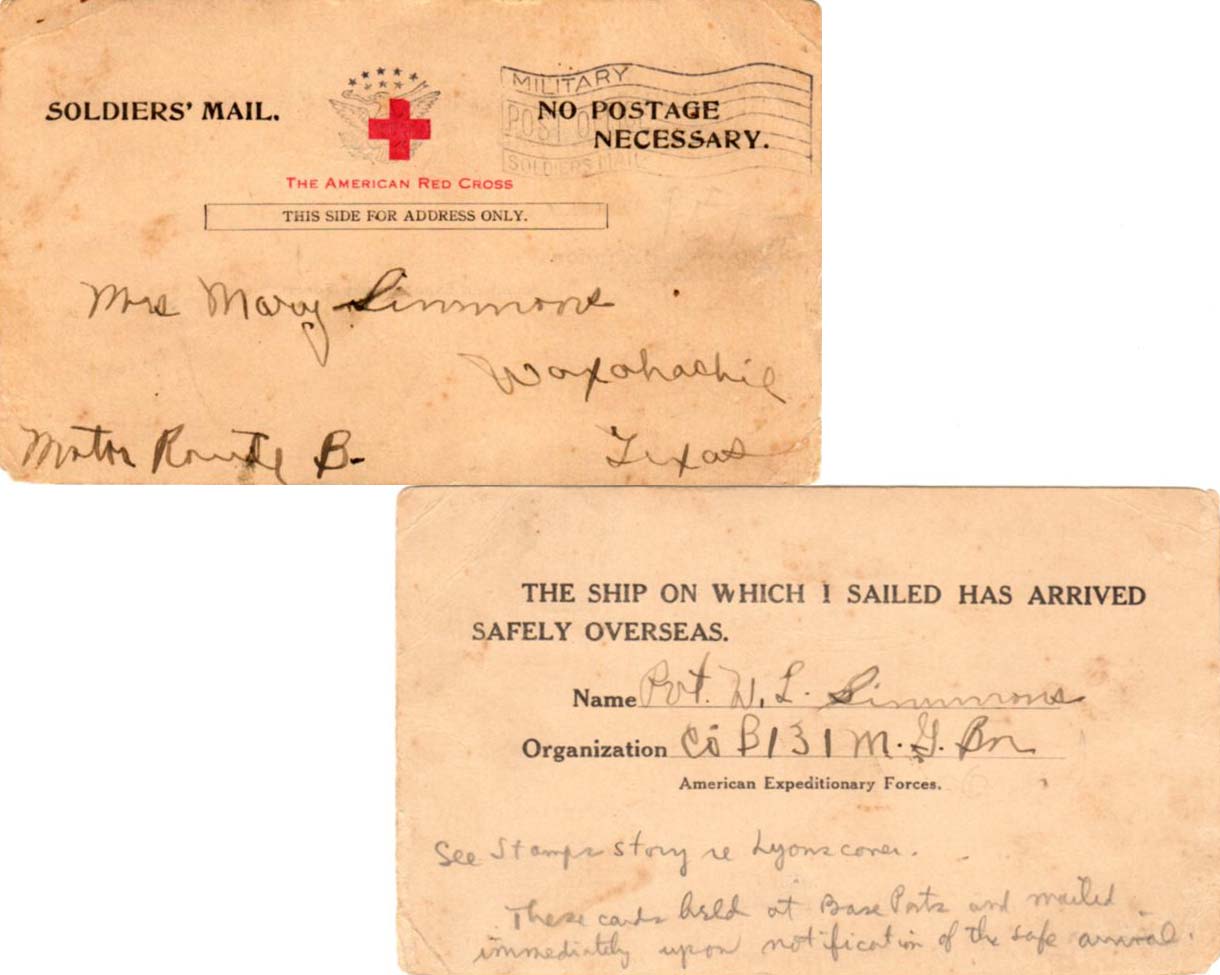 SOLDIERS' MAIL.
NO POSTAGE
NECESSARY.
MILITARY
POST
SOLDIERS MAIL
THE AMERICAN RED CROSS
THIS SIDE FOR ADDRESS ONLY.
Mrs Mary Simmons
Waxahachie
Motor Route B.
Texas
THE SHIP ON WHICH I SAILED HAS ARRIVED
SAFELY OVERSEAS.
Name Pvt. W. L. Simmons
Organization Co B 131 M. G. Bn
American Expeditionary Forces.
See Stamps story re Lyons cover.
These cards held at Base Ports and mailed
immediately upon notification of the safe arrival.